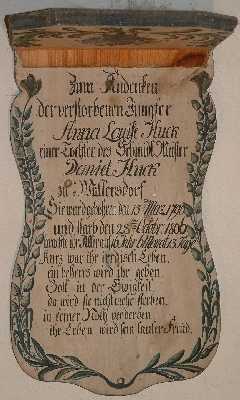 Zum Andenken
der verstorbenen Jungfer
Anna Louise Huck
einer Tochter des Schmidt Meister
Daniel Huck
zu Woltersdorf
Sie ward gebohren den 13 März 1790
und starb den 28 Octobr 1806
ihres Alters 16 Jahr 6 Monat 13 Tage
Kurz war ihr irrdisch Leben,
ein bessres wird ihr geben,
Gott in der Ewigkeit,
da wird sie nicht mehr sterben,
in keiner Noth verderben
ihr Leben wird sein lauter Freud.